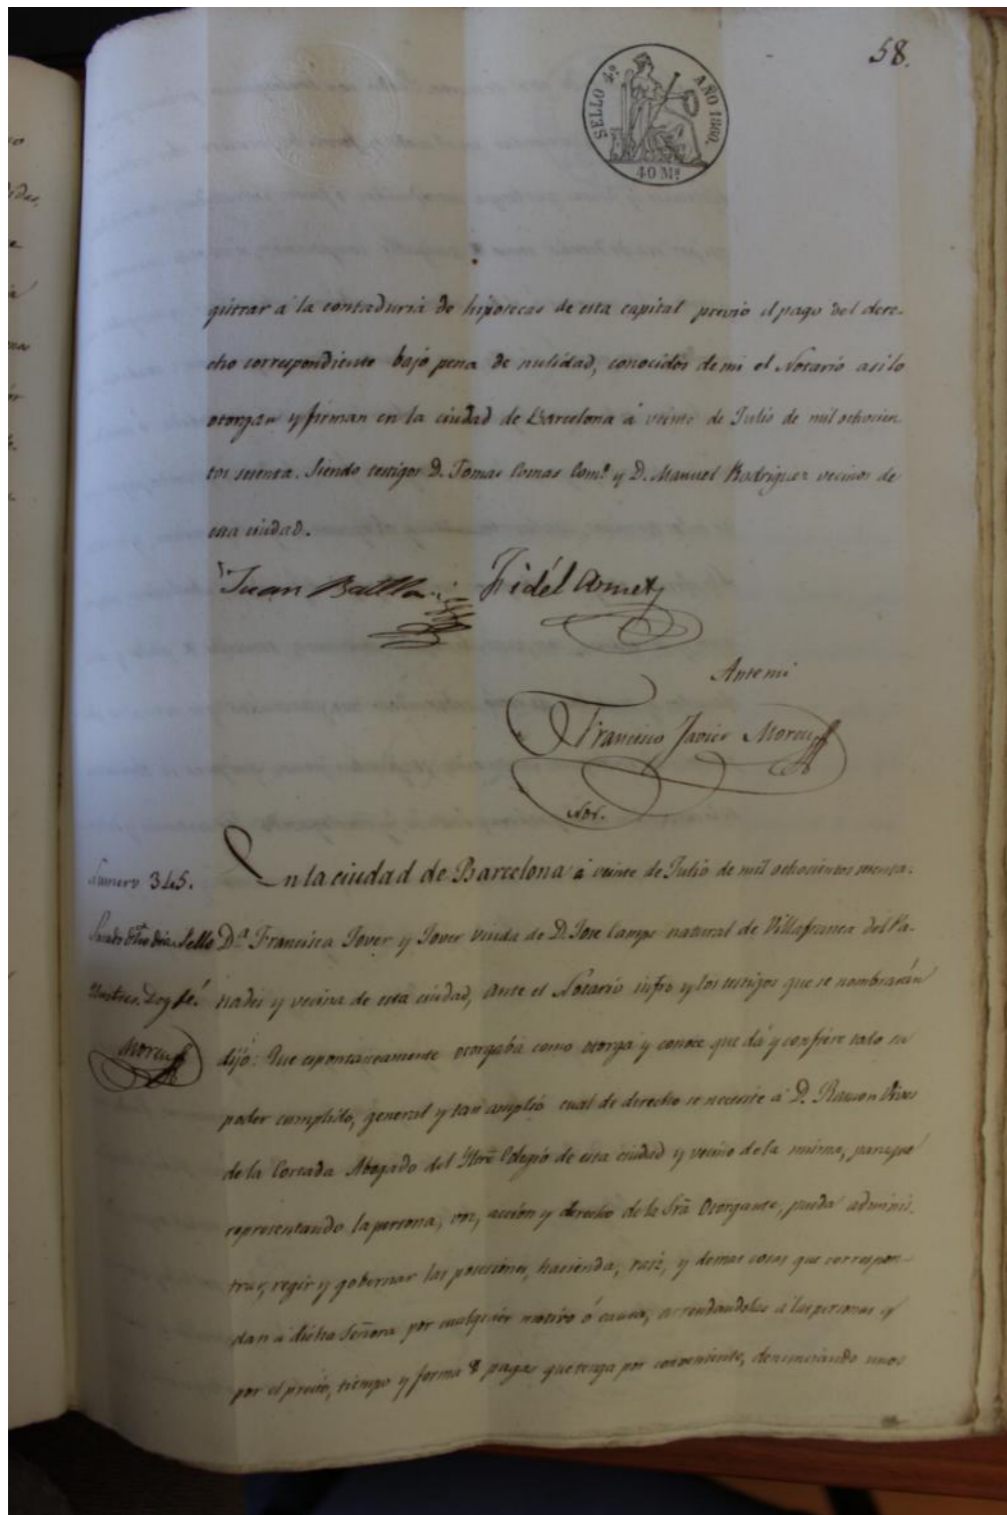 58.
SELLO 4º AÑO 1860.
40 Ms
gistrar á la contaduria de hipotecas de esta capital previo el pago del dere-
cho correspondiente bajo pena de nulidad, conocidos de mi el Notario asi lo
otorgan y firman en la ciudad de Barcelona á veinte de Julio de mil ochocien
tos sesenta. Siendo testigos D. Tomas Comas Comº y D. Manuel Rodriguez vecinos de
esta ciudad.
Juan Batlló Fidél Armet
Ante mi
Francisco Javier Moreu
Not.
Numero 345.
En la ciudad de Barcelona á veinte de Julio de mil ochocientos sesenta.
Sello
Dª Francisca Jover y Jover viuda de D. Jose Camps natural de Villafranca del Pa-
Doy fé.
nadés y vecina de esta ciudad, ante el Notario infro y los testigos que se nombrarán
Moreu
dijo: Que espontaneamente otorgaba como otorga y conoce que dá y confiere todo su
poder cumplido, general y tan amplio cual de derecho se necesite á D. Ramon Vives
de la Cortada Abogado del Iltre Colegio de esta ciudad y vecino de la misma, paraque
representando la persona, voz, acción y derecho de la Srã Otorgante, pueda adminis-
trar, regir y gobernar las posesiones, hacienda, raiz, y demas cosas que correspon-
dan á dicha Señora por cualquier motivo ó causa, arrendandolas á las personas y
por el precio, tiempo y forma de pagas que tenga por conveniente, denunciando unos